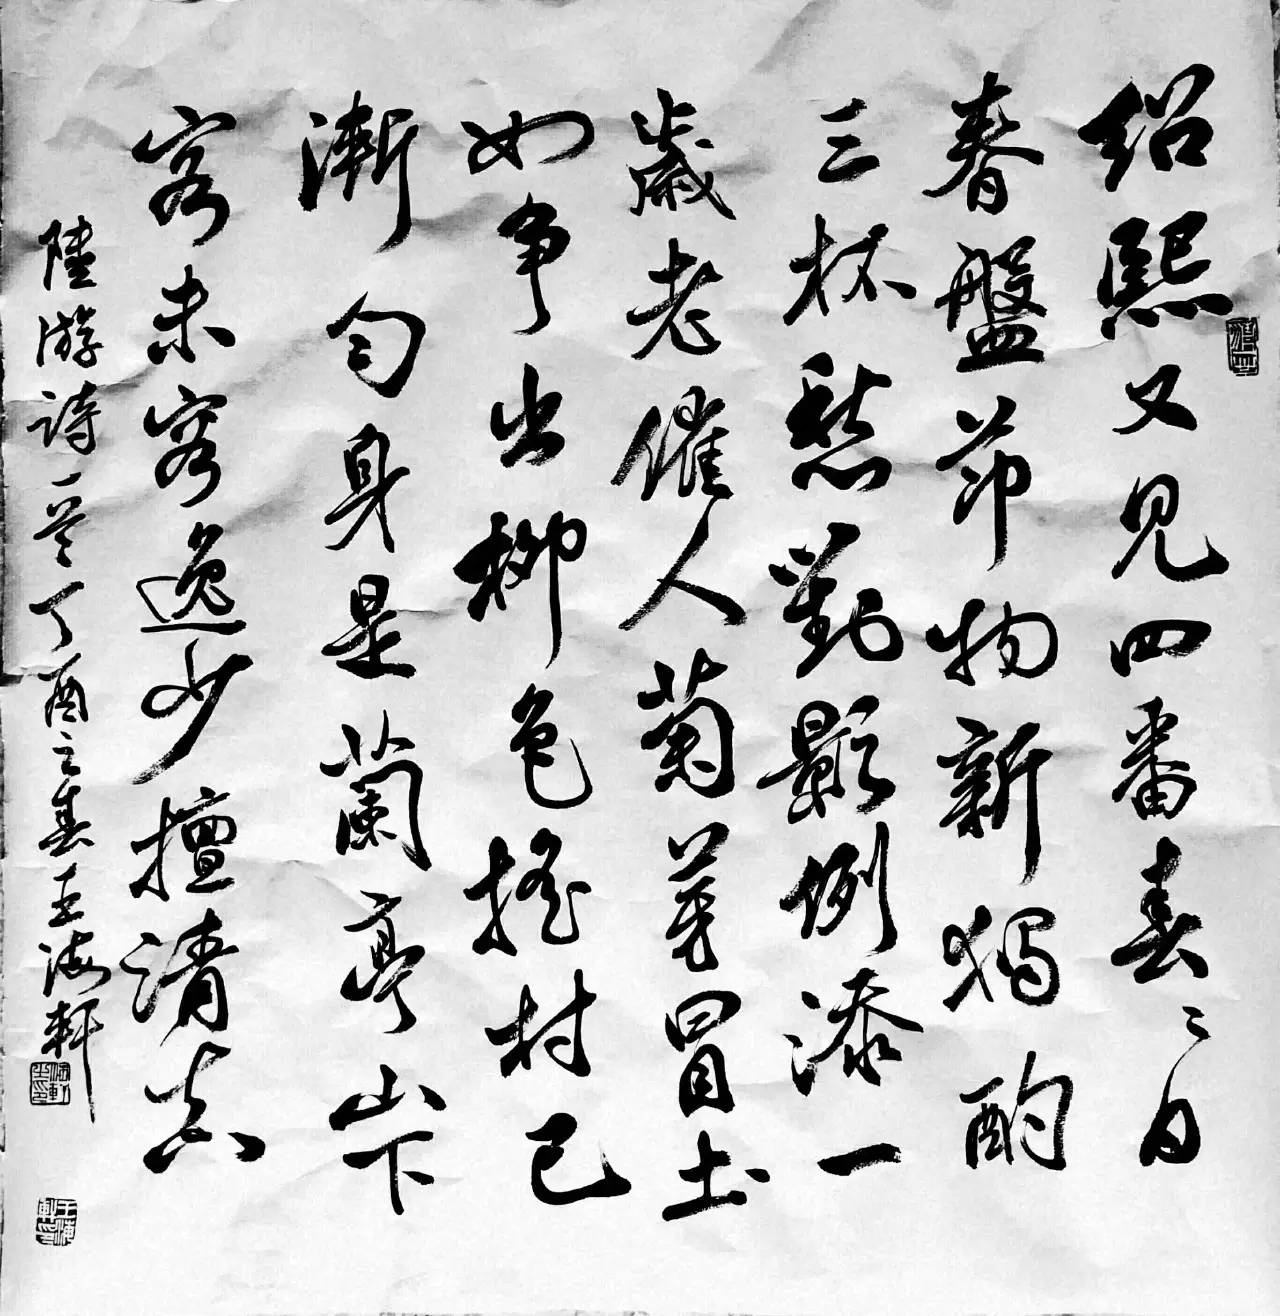 绍熙又见四番春〻日
春盤節物新獨酌
三杯愁對影例添一
歲老催人菊芽冒土
如争出柳色摇村已
漸匀身是蘭亭山下
客未容逸少擅清真
陸游詩一首丁酉之春王海軒